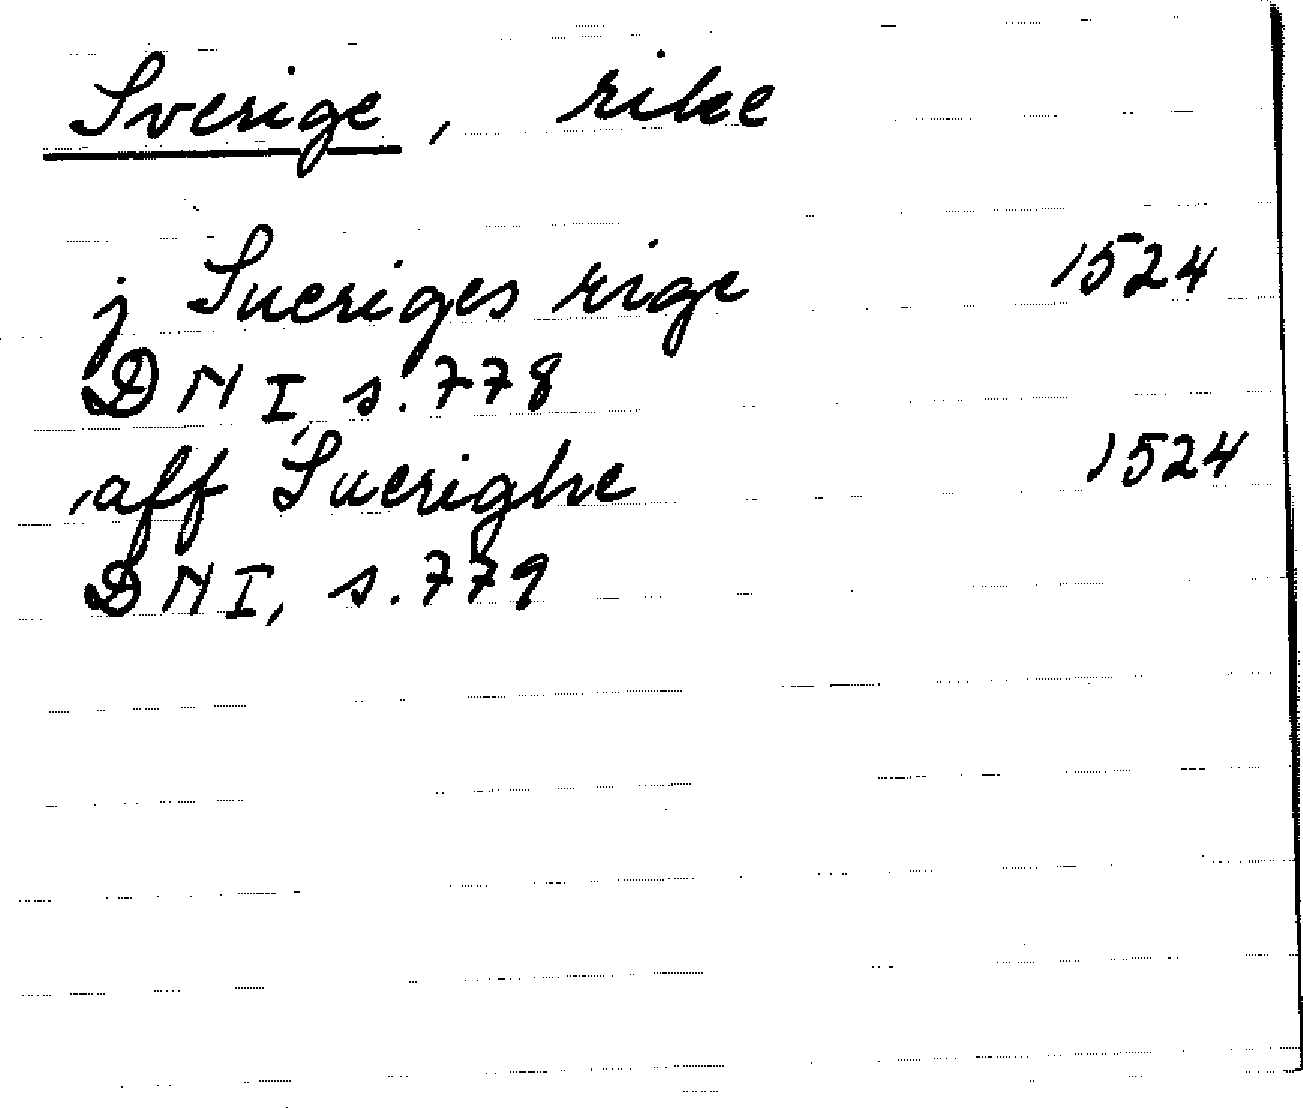 Sverige, rike
j Sueriges rige 1524
DMI, s. 778
aff Suerighe 1524
DMI, s. 779